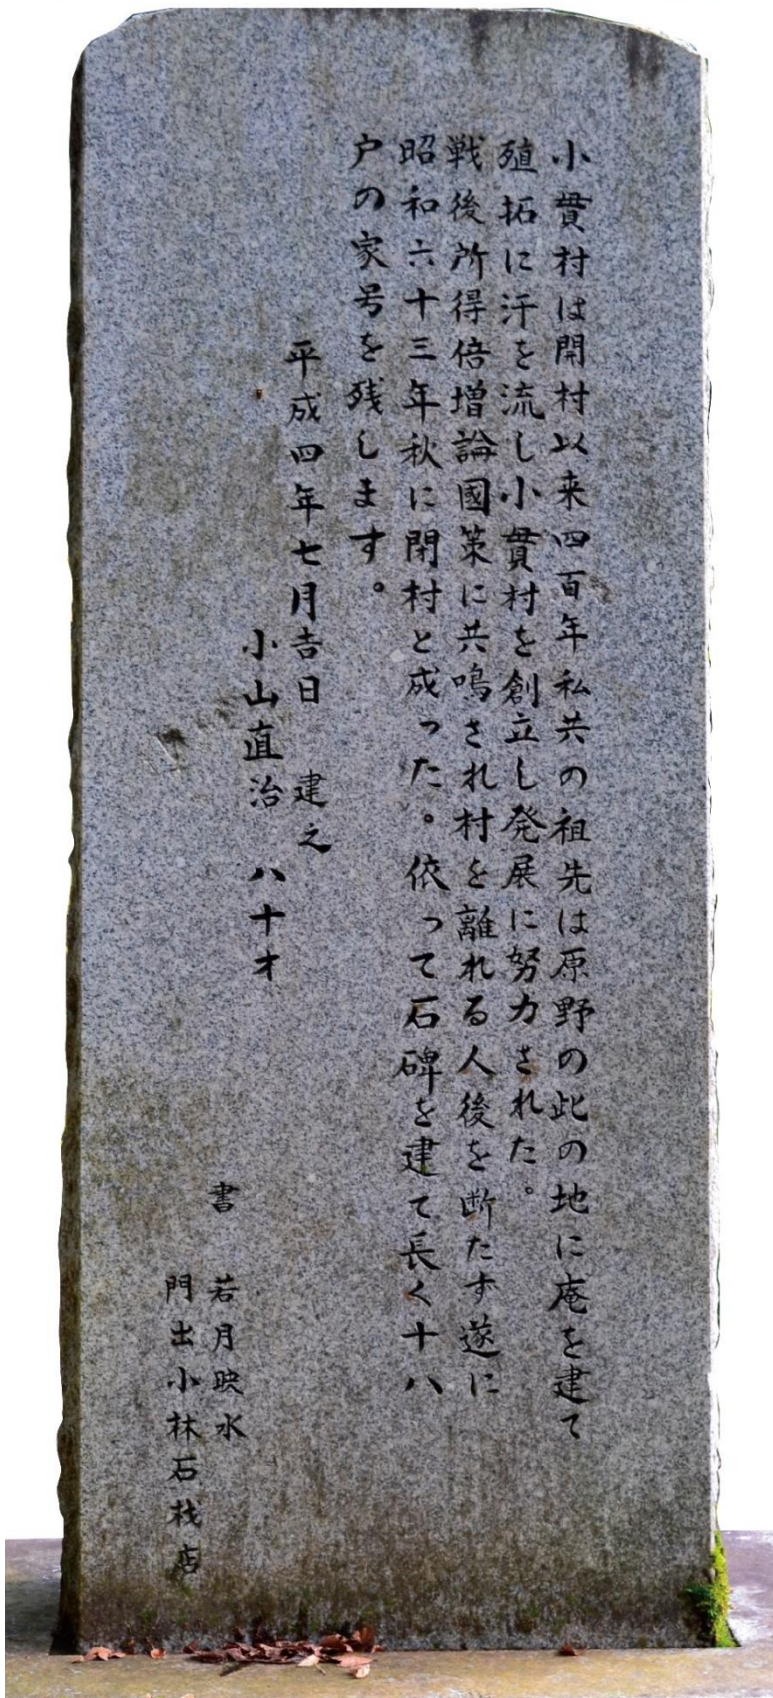 小貫村は開村以来四百年私共の祖先は原野の此の地に庵を建て
殖拓に汗を流し小貫村を創立し発展に努力された。
戦後所得倍増論國策に共鳴され村を離れる人後を断たず遂に
昭和六十三年秋に閉村と成った。依って石碑を建て長く十八
戸の家号を残します。
平成四年七月吉日 建之
小山直治 八十才
書 若月映水
門出小林石材店